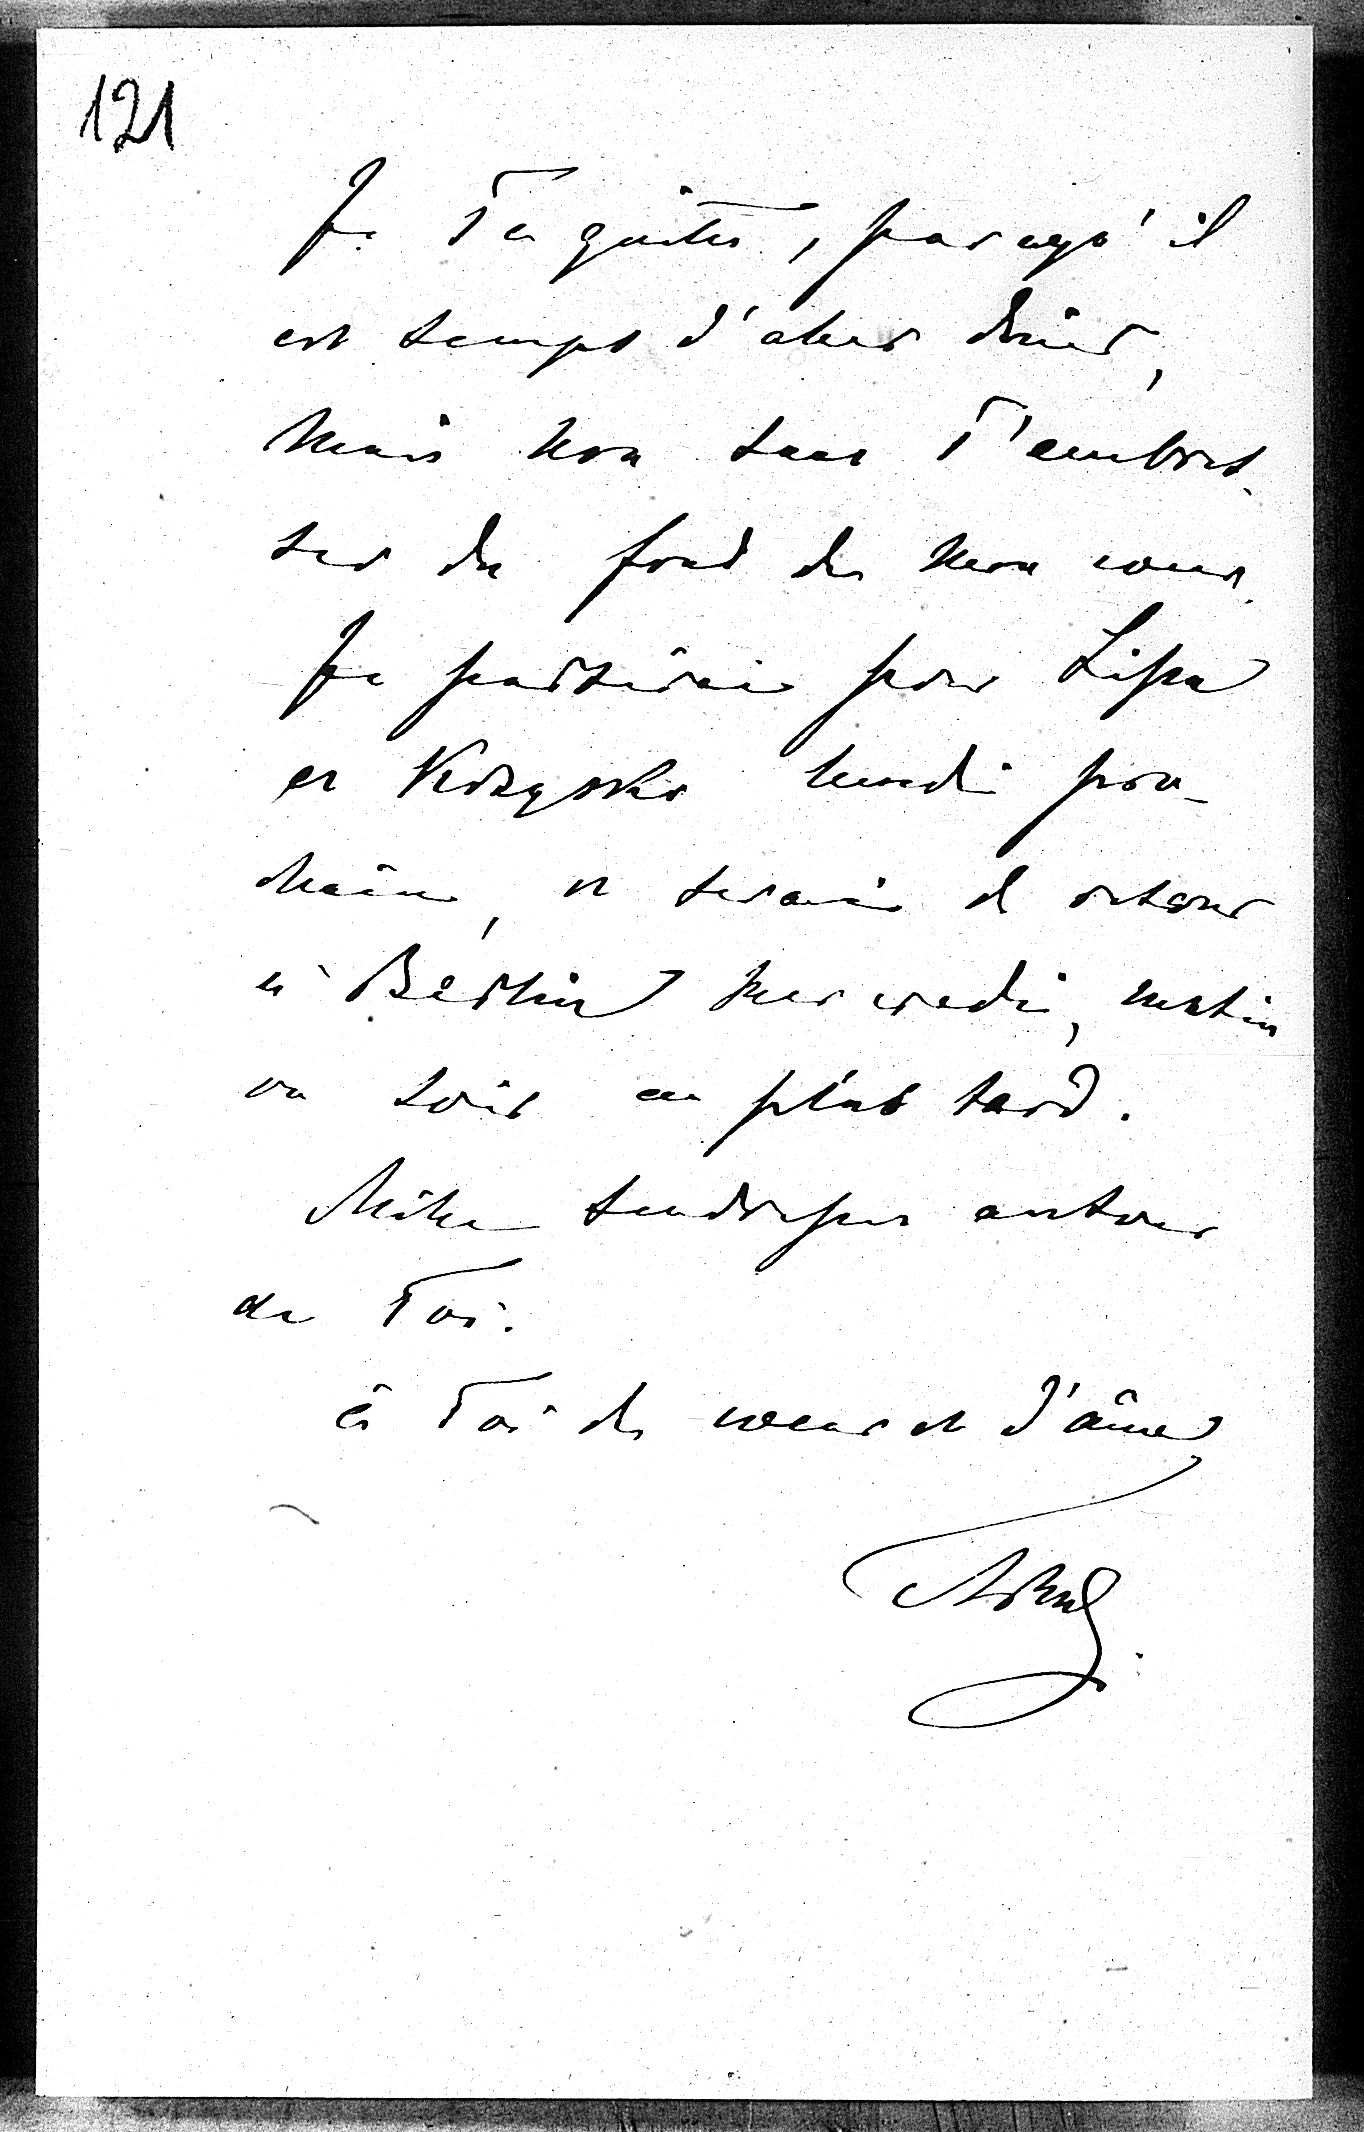 121
Je Te quitte, parcequ'il
est temps d'aller diner,
mais non sans T'embras-
ser du fond de mon coeur.
Je partirai pour Lissa
et Krzyżko lundi pro-
chain, et serai de retour
à Berlin mercredi, matin
ou soir au plus tard.
Mille tendresses autour
de Toi.
à Toi de coeur et d'âme